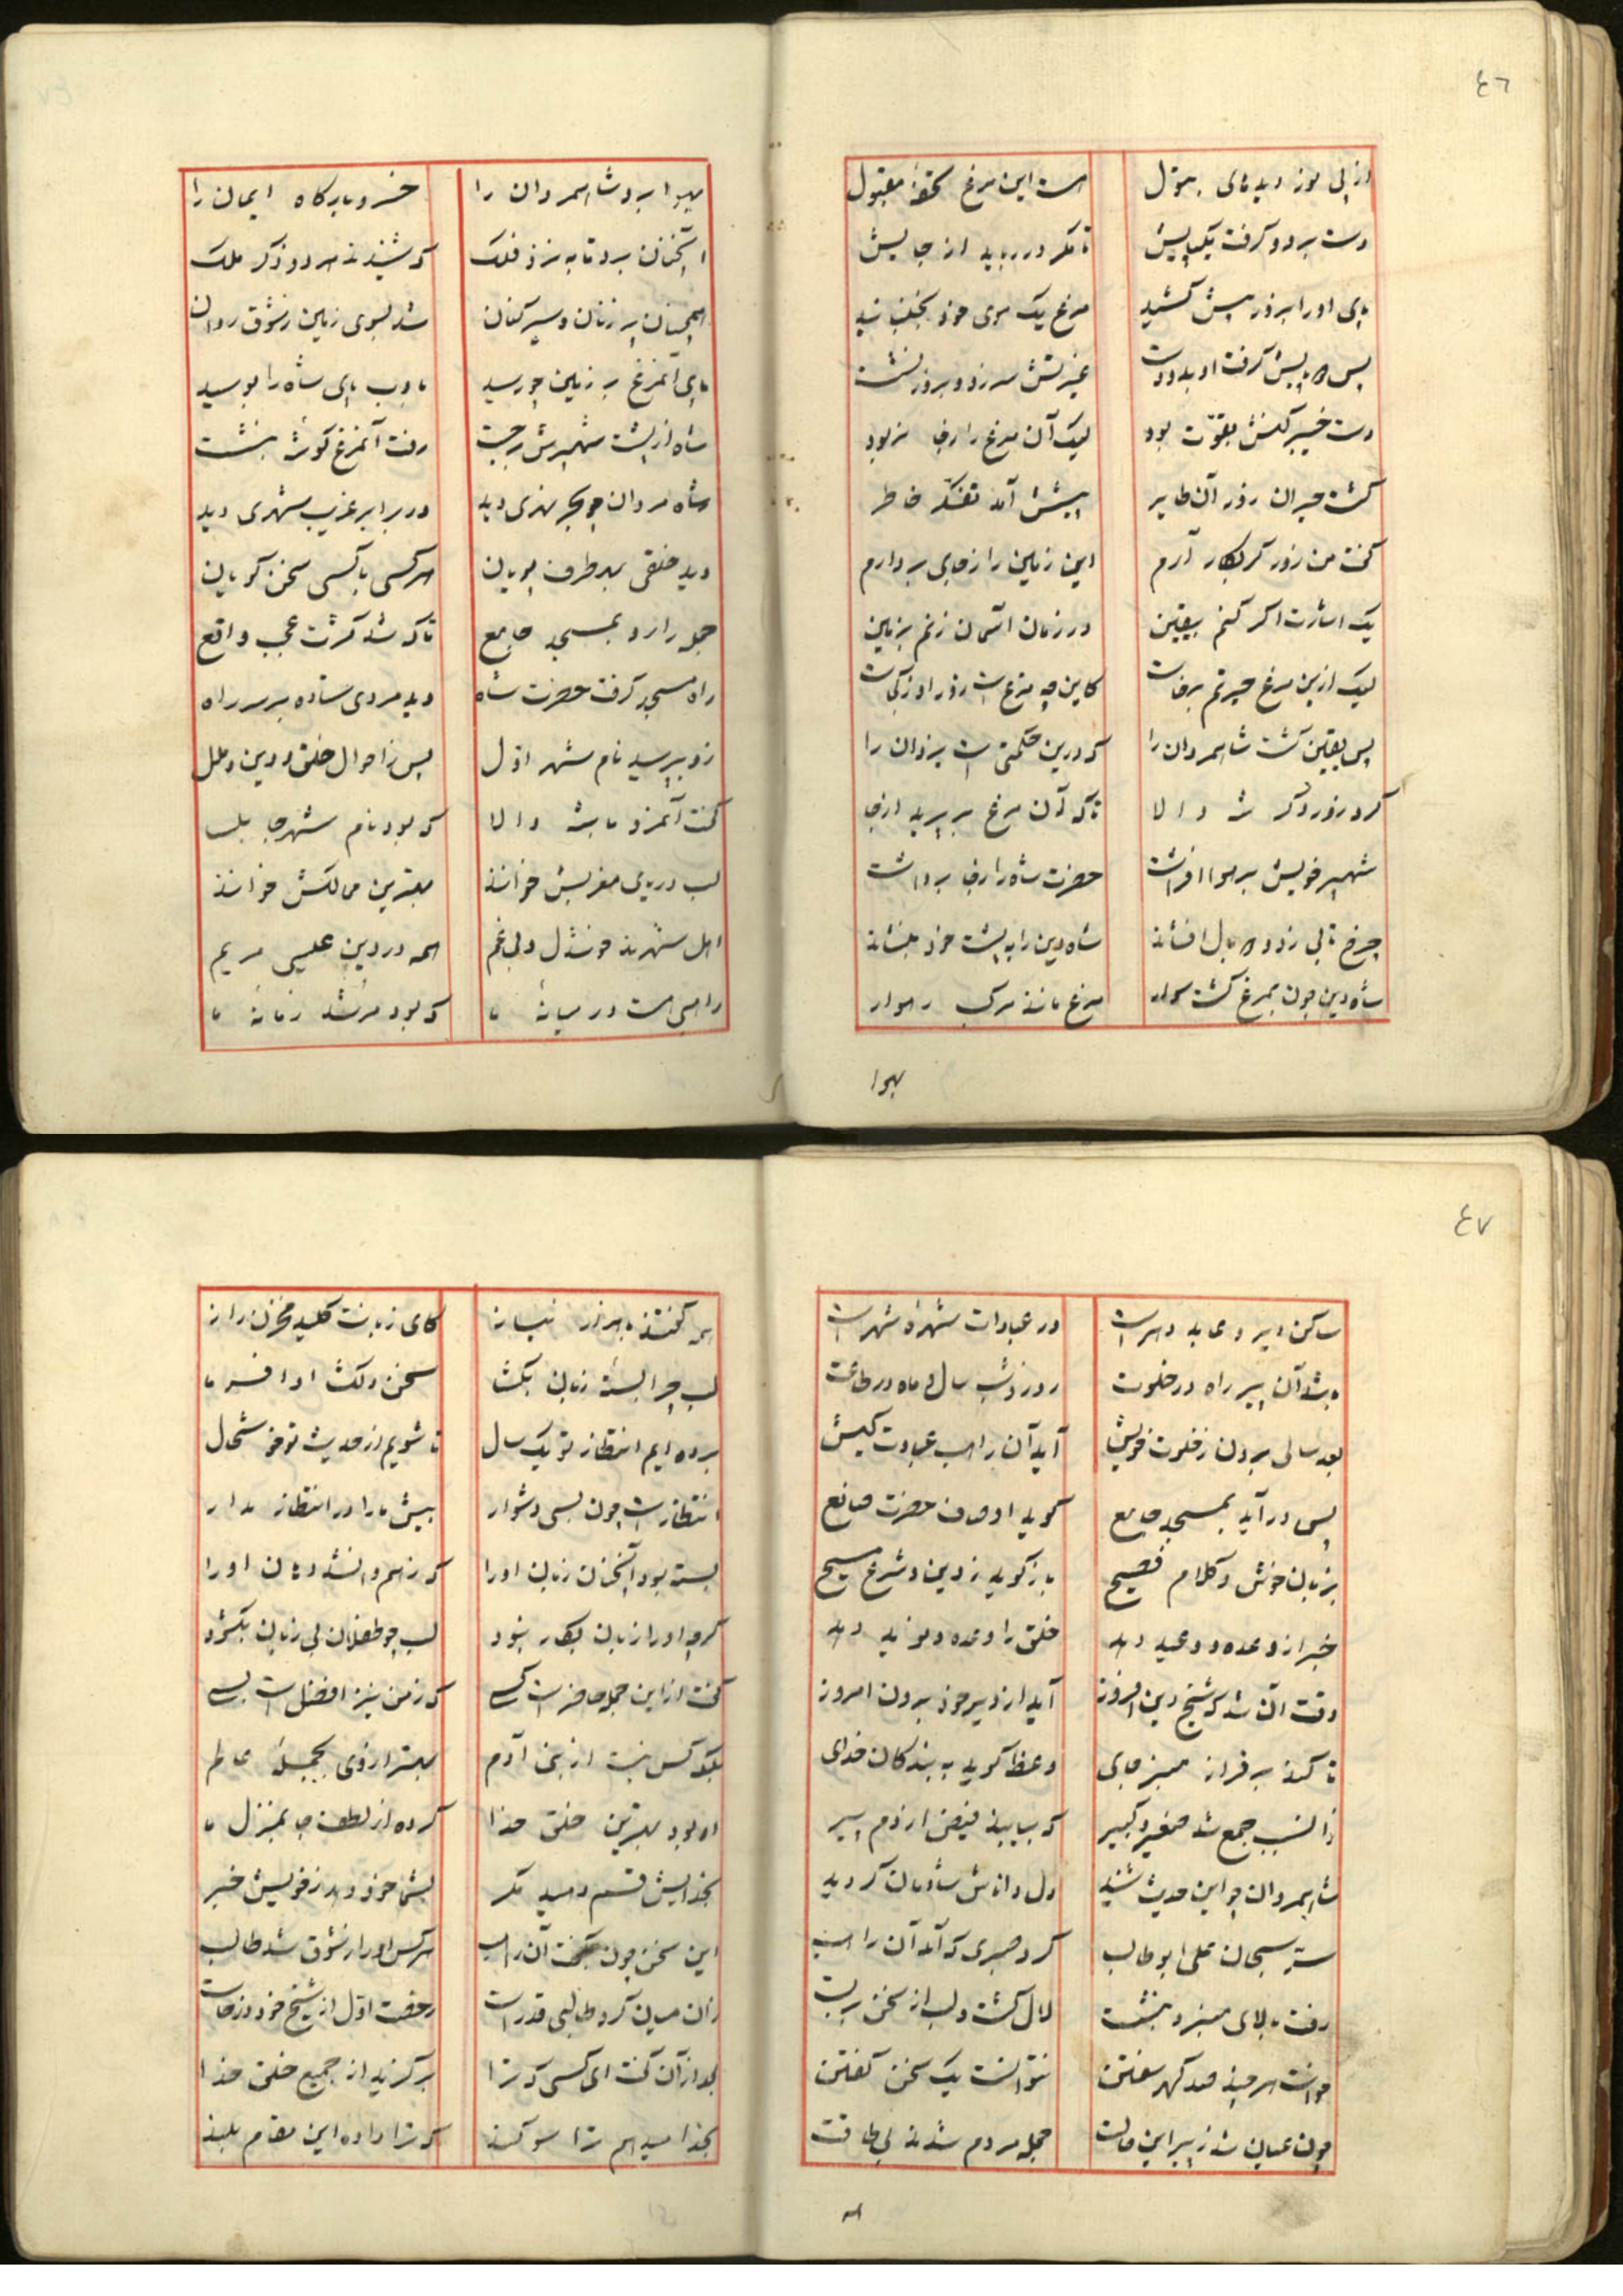 ٤٦
است این مرغ تحفهٔ مقبول
دست برد و گرفت یکپایش
تا مگر در رباید از جایش
پای او را بزور پیش کشید
مرغ یک موی خود بخنبانید
پس دو پایش گرفت او بدو دست
غیرتش سر زد و بزور نشست
دست خیبر کنش بقوّت بود
لیک آن مرغ را ز جا نربود
گشت حیران ز زور آن طایر
پیشش آمد تفکّر خاطر
گفت من زور گر بکار آرم
این زمین را ز جای بردارم
یک اشارت اگر کنم بیقین
در زمان آسمان زنم بزمین
لیک ازین مرغ حیرتم برخاست
کاین چه مرغ است زور او ز کجاست
پس یقین گشت شاهمردان را
که درین حکمتی است یزدان را
کرد زور دگر شه والا
تا که آن مرغ بر پرید از جا
شهپر خویش بر هوا افراشت
حضرت شاه را ز جا برداشت
چرخ تابی زد و دو بال افشاند
شاه دین را به پشت خود بنشاند
شاه دین چون بمرغ گشت سوار
مرغ مانند مرکب رهوار
بهوا
بهوا برد شاهمردان را
خسرو بارگاه ایمان را
آنچنان برد تا به نزد فلک
که شنیدند هر دو ذکر ملک
همچنان پر زنان و سیر کنان
شد بسوی زمین ز شوق روان
پای آنمرغ بر زمین چو رسید
با ادب پای شاه را بوسید
شاه از پشت شهپرش برجست
رفت آنمرغ گوشهٔ بنشست
شاه مردان چو بحر نهری دید
در برابر غریب شهری دید
دید خلقی بهر طرف پویان
هر کسی با کسی سخن گویان
جمله را رو بمسجد جامع
تا که شد کثرت عجب واقع
راه مسجد گرفت حضرت شاه
دید مردی ستاده بر سر راه
زو بپرسید نام شهر اوّل
پس ز احوال خلق و دین و ملل
گفت آنمرد با شه والا
که بود نام شهر جابلسا
لب دریای مغربش خوانند
بهترین ممالکش خوانند
اهل شهرند خوشدل و بی غم
همه در دین عیسی مریم
راهبی هست در میانهٔ ما
که بود مرشد زمانهٔ ما
٤٧
ساکن دیر و عابد دهر است
در عبادات شهرهٔ شهر است
باشد آن پیر راه در خلوت
روز و شب سال و ماه در طاعت
بعد سالی برون ز خلوت خویش
آید آن راهب عبادت کیش
پس در آید بمسجد جامع
گوید اوصاف حضرت صانع
بزبان خوش و کلام فصیح
باز گوید ز دین و شرع مسیح
خبر از وعده و وعید دهد
خلق را وعده و نوید دهد
وقت آن شد که شیخ دین افروز
آید از دیر خود برون امروز
تا کند بر فراز منبر جای
وعظ گوید به بندگان خدای
زانسبب جمع شد صغیر و کبیر
که بیابند فیض از دم پیر
شاهمردان چو این حدیث شنید
دل داناش شادمان گردید
سرّ سبحان علی ابو طالب
کرد صبری که آمد آن راهب
رفت بالای منبر و بنشست
لال گشت و لب از سخن بربست
خواست هر چند صد گهر سفتن
نتوانست یک سخن گفتن
چون عیان شد ز پیر این حالت
جمله مردم شدند بی طاقت
همه
همه گفتند با هزار نیاز
کای زبانت کلید مخزن راز
لب چرا بستهٔ زبان بگشا
سخن دلکش ادا فرما
برده ایم انتظار تو یک سال
تا شویم از حدیث تو خوشحال
انتظار است چون بسی دشوار
بیش ما را در انتظار مدار
بسته بود آنچنان زبان او را
که ز هم وانشد دهان او را
گرچه او را زبان بکار نبود
لب چو طفلان بی زبان بگشود
گفت از این جمله حاضر است کسی
که ز من نیز افضل است بسی
بلکه کس نیست از بنی آدم
بهتر از وی بجملهٔ عالم
او بود بهترین خلق خدا
کرده از لطف جا بمنزل ما
بخدایش قسم دهید مگر
بشما خود دهد ز خویش خبر
این سخن چون بگفت آن راهب
هر کس او را ز شوق شد طالب
زان میان کرد طالبی قد راست
رخصت اوّل از شیخ خود درخواست
بعد از آن گفت ای کسی که ترا
برگزید از جمیع خلق خدا
بخدا میدهم ترا سوگند
که ترا داده این مقام بلند